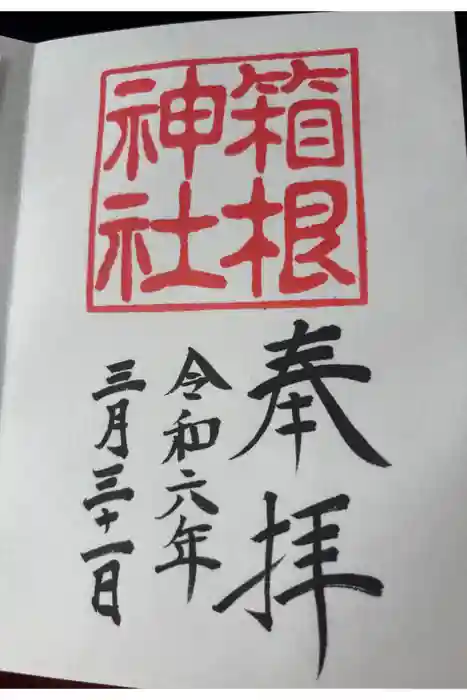 箱根
神社
奉拝
令和六年
三月三十一日